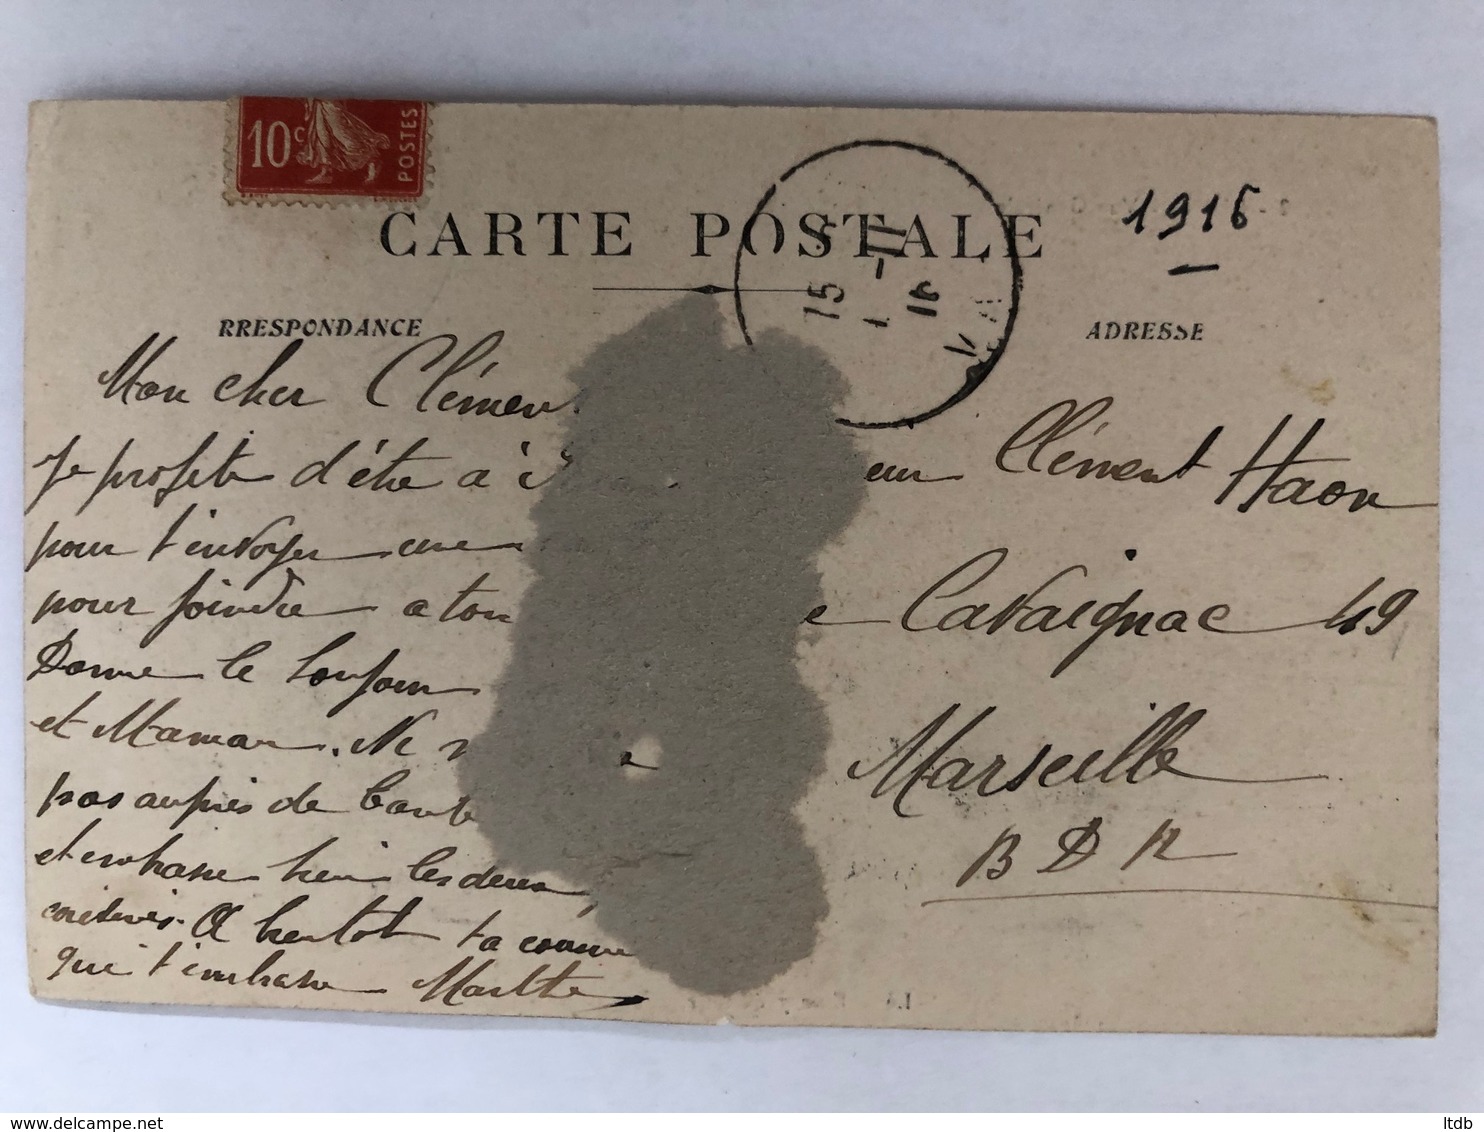 10c
POSTES
CARTE POSTALE
1916
15
-11
16
VA
RRESPONDANCE
ADRESSE
Mon cher Clémen
Je profite d'être à
pour t'envoyer une
pour joindre a ton
Donne le bonjour
et Maman. Ne
pas auprès de
et embrasse bien les deux
A bientot ta cousine
qui t'embrasse Marthe
eur Clément Haon
e Cavaignac 49
Marseille
B D R
ltdb